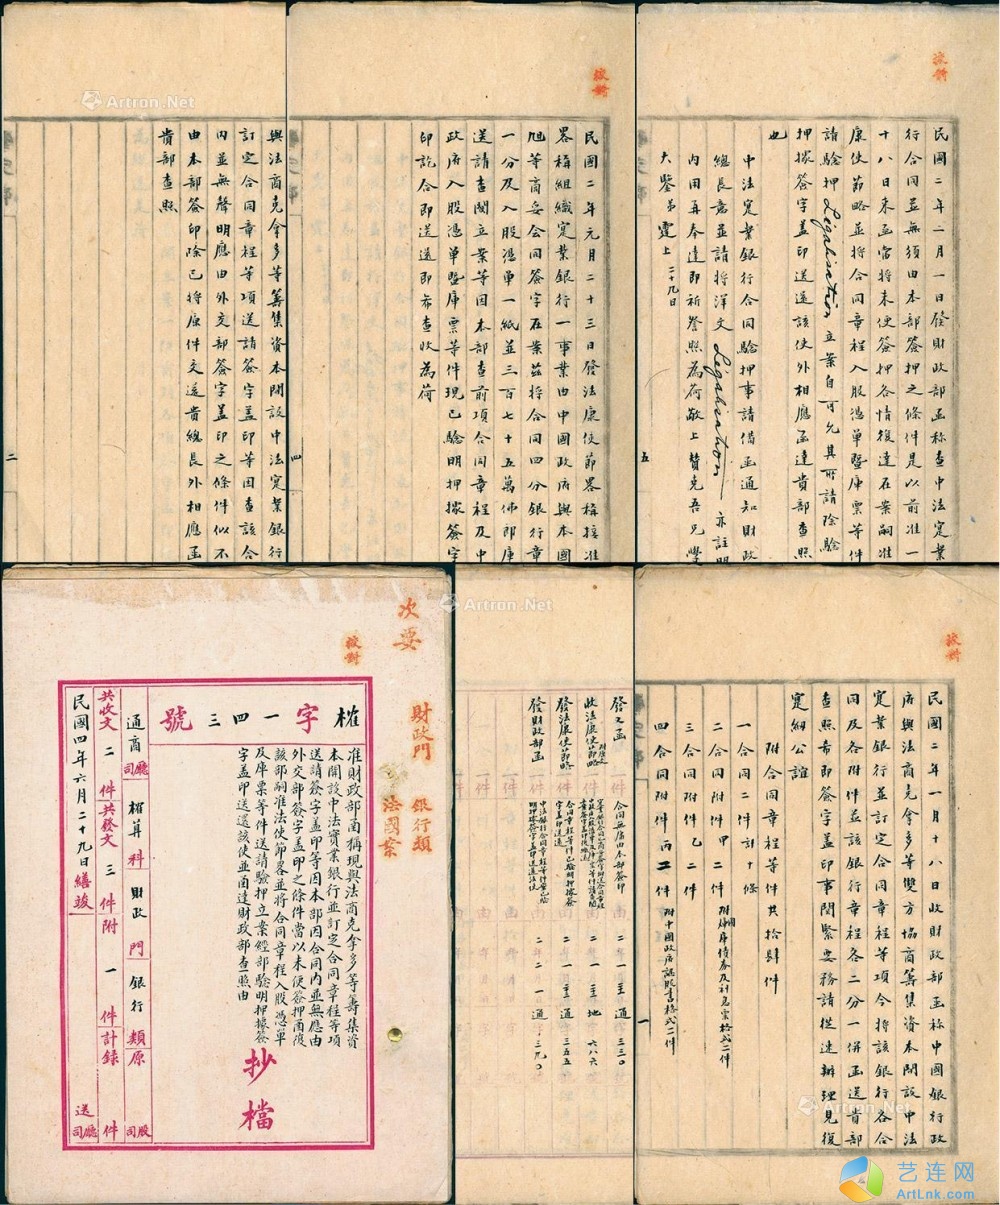 與法商克拿多等籌集資本開設中法實業銀行
訂定合同章程等項送請簽字蓋印等因查該合
內並無聲明應由外交部簽字蓋印之條件似不
由本部簽印除已將原件交還貴總長外相應函
貴部查照
二
校對
民國二年元月二十三日發法康使節畧稱接准
畧稱組織實業銀行一事業由中國政府與本國
旭等商妥會同簽字在案茲將合同四分銀行章
一分及入股憑單一紙並三百七十五萬佛郎庫
送請查閱立案等因本部查前項合同章程及中
政府入股憑單暨庫票等件現已驗明押據簽字
印訖合即送還即希查收為荷
四
校對
民國二年二月一日發財政部函稱查中法實業
行合同並無須由本部簽押之條件是以前准一
十八日來函當將未便簽押各情復達在案嗣准
康使節略並將合同章程入股憑單暨庫票等件
請驗押Legalisation立案自可允其所請除驗
押據簽字蓋印送還該使外相應函達貴部查照
也
中法實業銀行合同驗押事請備函通知財政
總長意並請將洋文Legalisation一亦註明
內用再奉達即祈詧照為荷敬上贊克吾兄
大鑒弟霽上 二十九日
五
次要
校對
財政門 銀行類
法國案
榷字一四三號
准財政部函稱現與法商克拿多等籌集資
本開設中法實業銀行並訂定合同章程等項
送請簽字蓋印等因本部因合同內並無應由
外交部簽字蓋印之條件當以未便簽押函復
該部嗣准法使節畧並將合同章程入股憑單
及庫票等件送請驗押立案經部驗明押據簽
字蓋印送還該使並函達財政部查照由
抄檔
通商司廳 榷算科 財政門 銀行類 原 股司
共收文二件共發文三件附一件計錄 件
民國四年六月二十九日繕竣
送司廳
發文函 合同無庸由本部簽印 二 一 三三〇
收法康使節略 二 一 六八六
發法康使節略 二 一 三五五
發財政部函 二 二 一 三九〇
校對
民國二年一月十八日收財政部函稱中國銀行政
府與法商克拿多等雙方協商籌集資本開設中法
實業銀行並訂定合同章程等項今將該銀行各合
同及各附件並該銀行章程各二分一併函送貴部
查照希即簽字蓋印事關緊要務請從速辦理見復
實紉公誼
附合同章程等件共拾肆件
一合同二件計十條
二合同附件甲二件 附庫債券及計息票格式二件
三合同附件乙二件
四合同附件丙二件 附中國政府認股書格式二件
一
Artron.Net
Artron.Net
Artron.Net
艺连网
ArtLnk.com